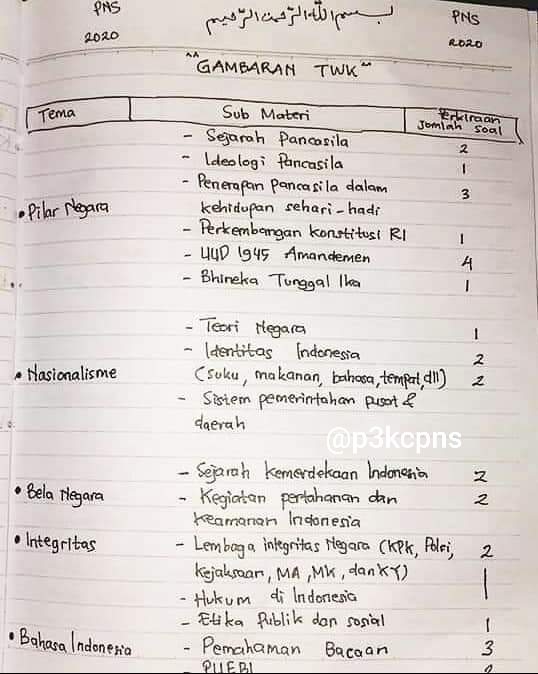 PNS بسم الله الرحمن الرحيم PNS
2020 2020
"GAMBARAN TWK"
Tema Sub Materi Perkiraan Jomlah Soal
- Sejarah Pancasila 2
- Ideologi Pancasila 1
- Penerapan Pancasila dalam 3
• Pilar Negara kehidupan sehari-hari
- Perkembangan konstitusi RI 1
- UUD 1945 Amandemen 4
- Bhineka Tunggal Ika 1
- Teori Negara 1
- Identitas Indonesia 2
• Nasionalisme (suku, makanan, bahasa, tempat, dll) 2
- Sistem pemerintahan pusat &
daerah
@p3kcpns
- Sejarah kemerdekaan Indonesia 2
• Bela Negara - Kegiatan pertahanan dan 2
keamanan Indonesia
• Integritas - Lembaga integritas Negara (KPK, Polri, 2
kejaksaan, MA, MK, dan KY)
- Hukum di Indonesia 1
- Etika Publik dan sosial 1
• Bahasa Indonesia - Pemahaman Bacaan 3
- PUEBI